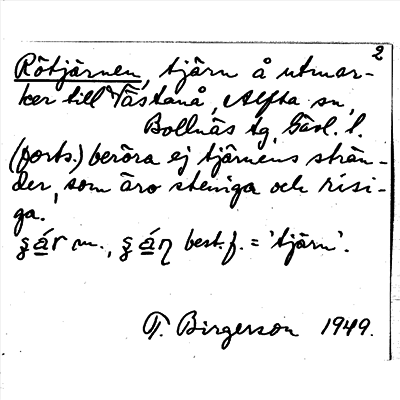 2
Rötjärnen, tjärn å utmar-
ker till Västanå, Alfta sn,
Bollnäs tg, Gävl. l.
(forts.) beröra ej tjärnens strän-
der, som äro steniga och risi-
ga.
m., best. f. = 'tjärn'.
T. Birgerson 1949.